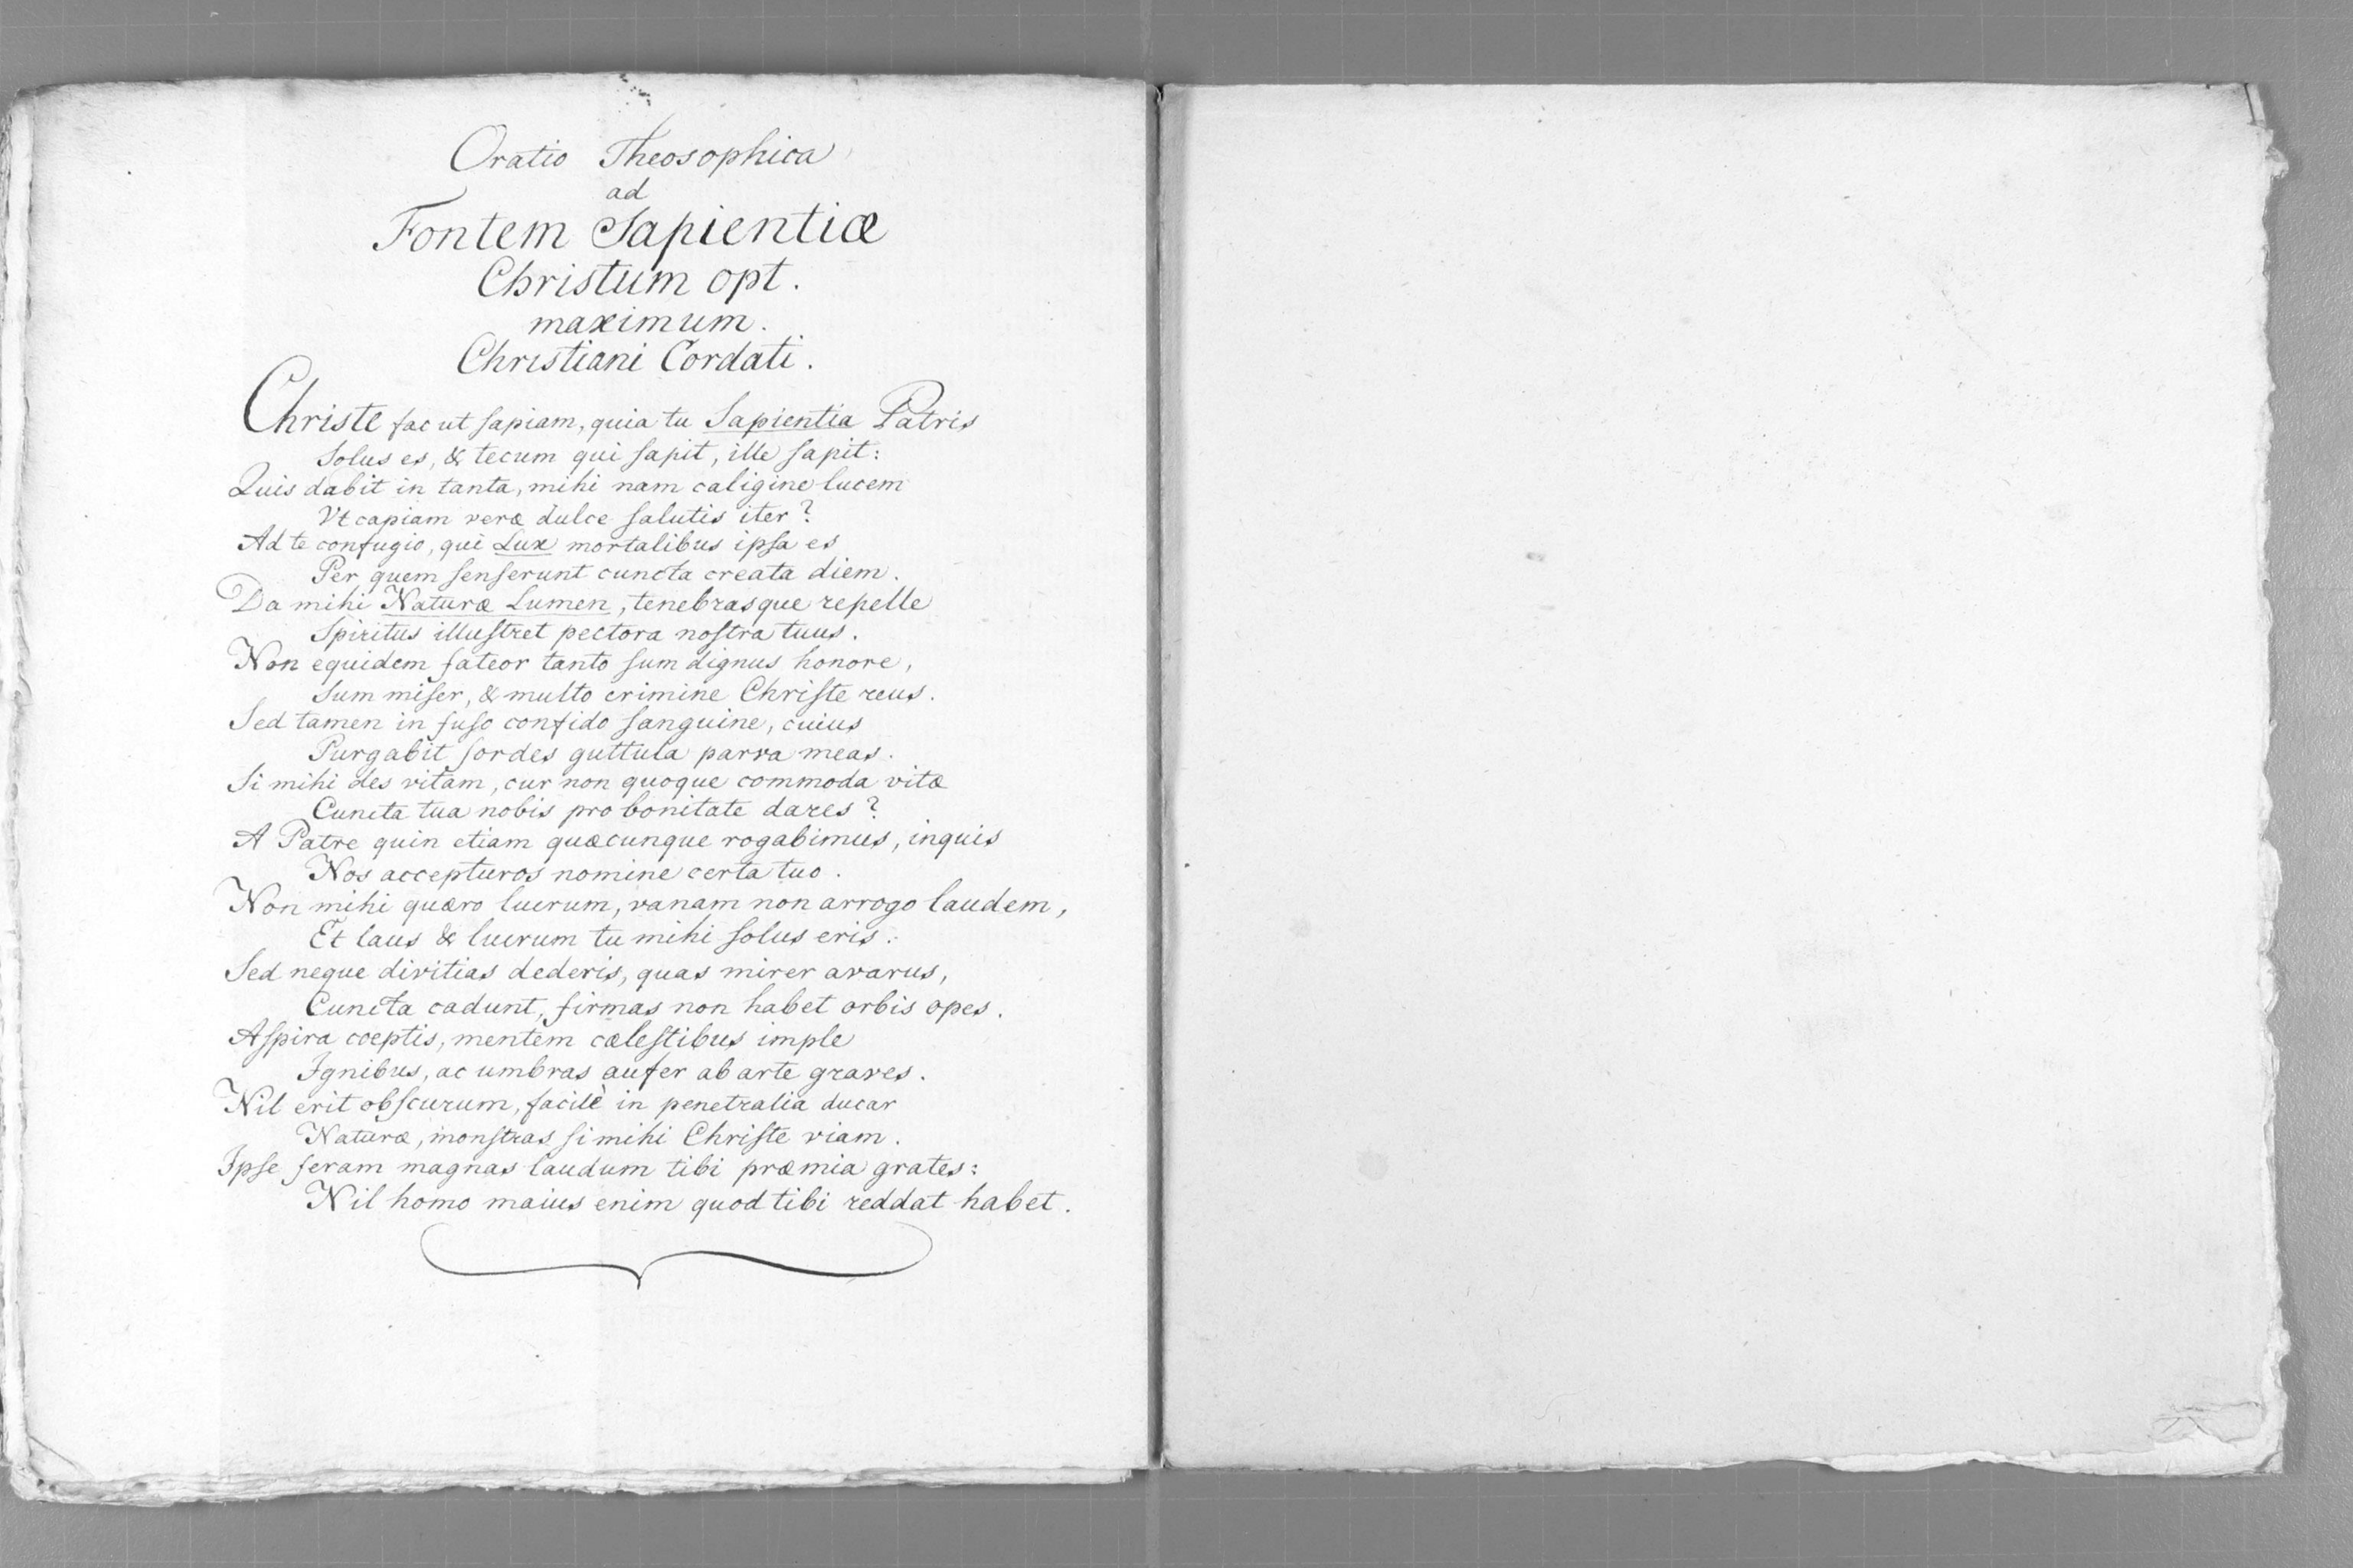 Oratio Theosophica
ad
Fontem Sapientiæ
Christum opt.
maximum.
Christiani Cordati.
Christe fac ut ſapiam, quia tu Sapientia Patris
Solus es, & tecum qui ſapit, ille ſapit:
Quis dabit in tanta, mihi nam caligine lucem
Vt capiam veræ dulce ſalutis iter?
Ad te confugio, qui Lux mortalibus ipſa es
Per quem ſenſerunt cuncta creata diem.
Da mihi Naturæ Lumen, tenebrasque repelle
Spiritus illuſtret pectora noſtra tuus.
Non equidem fateor tanto ſum dignus honore,
Sum miſer, & multo crimine Chriſte reus.
Sed tamen in fuſo confido ſanguine, cuius
Purgabit ſordes guttula parva meas.
Si mihi des vitam, cur non quoque commoda vitæ
Cuncta tua nobis pro bonitate dares?
A Patre quin etiam quæcunque rogabimus, inquis
Nos accepturos nomine certa tuo.
Non mihi quæro lucrum, vanam non arrogo laudem,
Et laus & lucrum tu mihi ſolus eris:
Sed neque divitias dederis, quas mirer avarus,
Cuncta cadunt, firmas non habet orbis opes.
Aſpira cœptis, mentem cæleſtibus imple
Ignibus, ac umbras aufer ab arte graves.
Nil erit obſcurum, facilè in penetralia ducar
Naturæ, monſtras ſi mihi Chriſte viam.
Ipſe feram magnas laudum tibi præmia grates:
Nil homo maius enim quod tibi reddat habet.